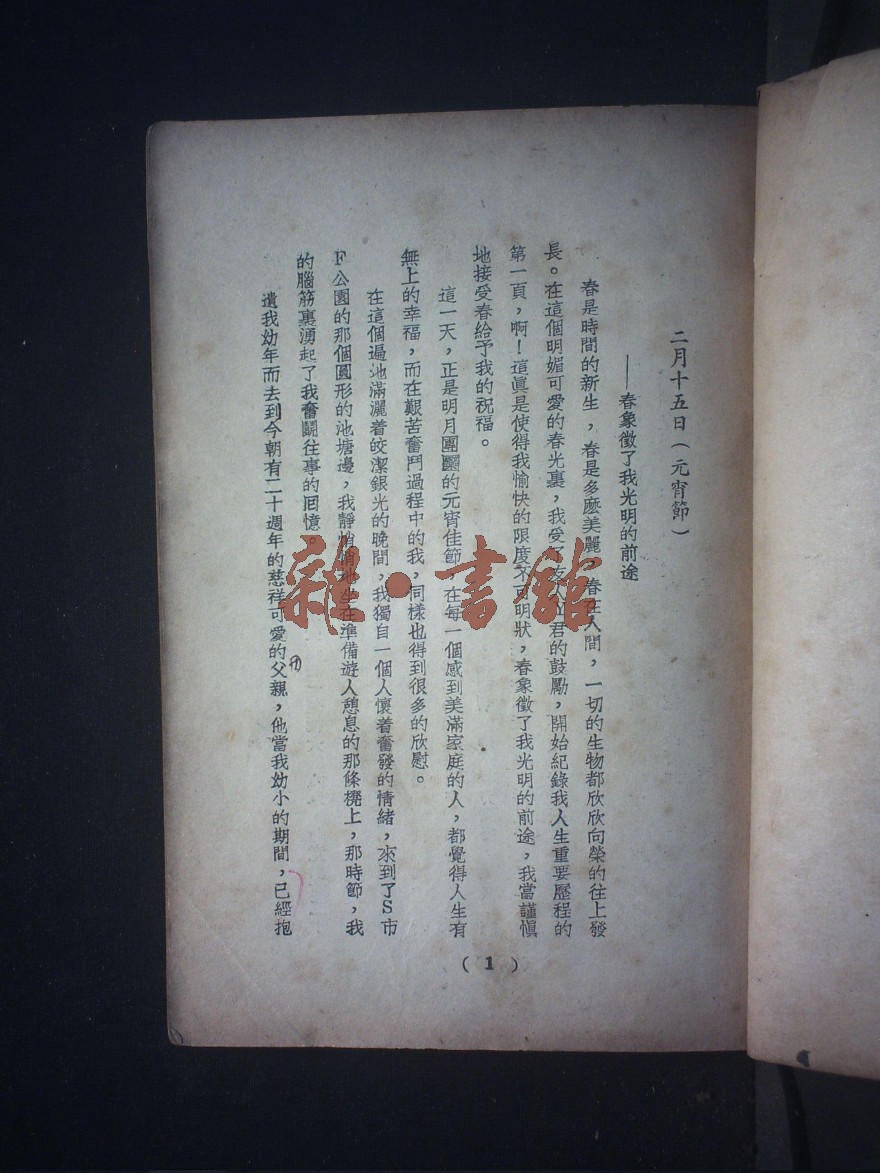 二月十五日（元宵節）
——春象徵了我光明的前途
春是時間的新生，春是多麽美麗，春在人間，一切的生物都欣欣向榮的往上發
長。在這個明媚可愛的春光裏，我受了友人立君的鼓勵，開始紀錄我人生重要歷程的
第一頁，啊！這眞是使得我愉快的限度不可明狀，春象徵了我光明的前途，我當謹愼
地接受春給予我的祝福。
這一天，正是明月團圞的元宵佳節，在每一個感到美滿家庭的人，都覺得人生有
無上的幸福，而在艱苦奮鬥過程中的我，同樣也得到很多的欣慰。
在這個遍地滿灑着皎潔銀光的晚間，我獨自一個人懷着奮發的情緒，來到了S市
F公園的那個圓形的池塘邊，我靜悄悄地坐在準備遊人憩息的那條櫈上，那時節，我
的腦筋裏湧起了我奮鬭往事的囘憶。
遺我幼年而去到今朝有二十週年的慈祥可愛的父親，他當我幼小的期間，已經抱
（1）
雜·書館